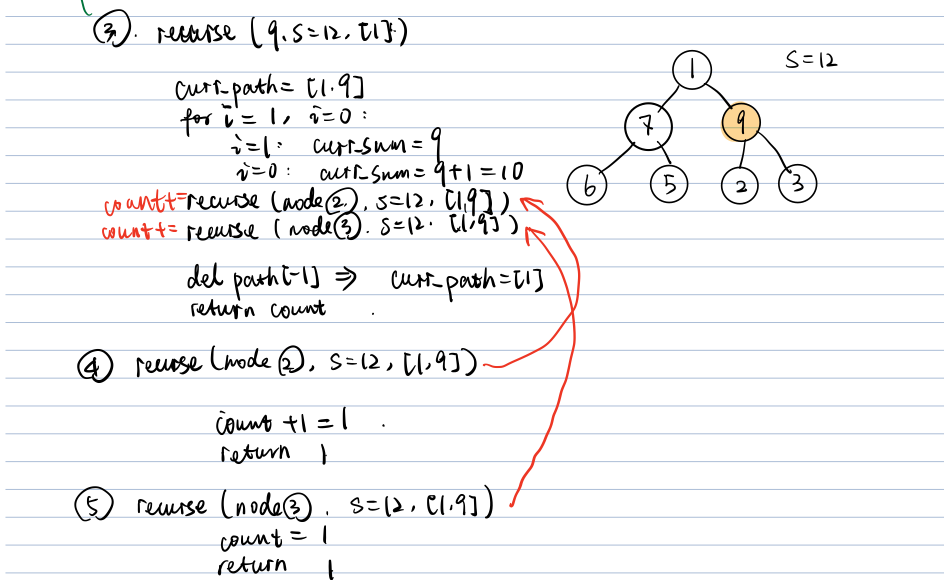 ③. recurse (9, S=12, [1])
curr_path = [1,9]
for i = 1, i=0 :
i=1: curr_sum = 9
i=0: curr_sum = 9+1=10
count+=recurse (node②, S=12, [1,9])
count+= recurse (node③, S=12, [1,9])
del path[-1] ⇒ curr_path=[1]
return count
④ recurse (node②, S=12, [1,9])
count +1 = 1
return 1
⑤ recurse (node③, S=12, [1,9])
count = 1
return 1
1 S=12
7 9
6 5 2 3